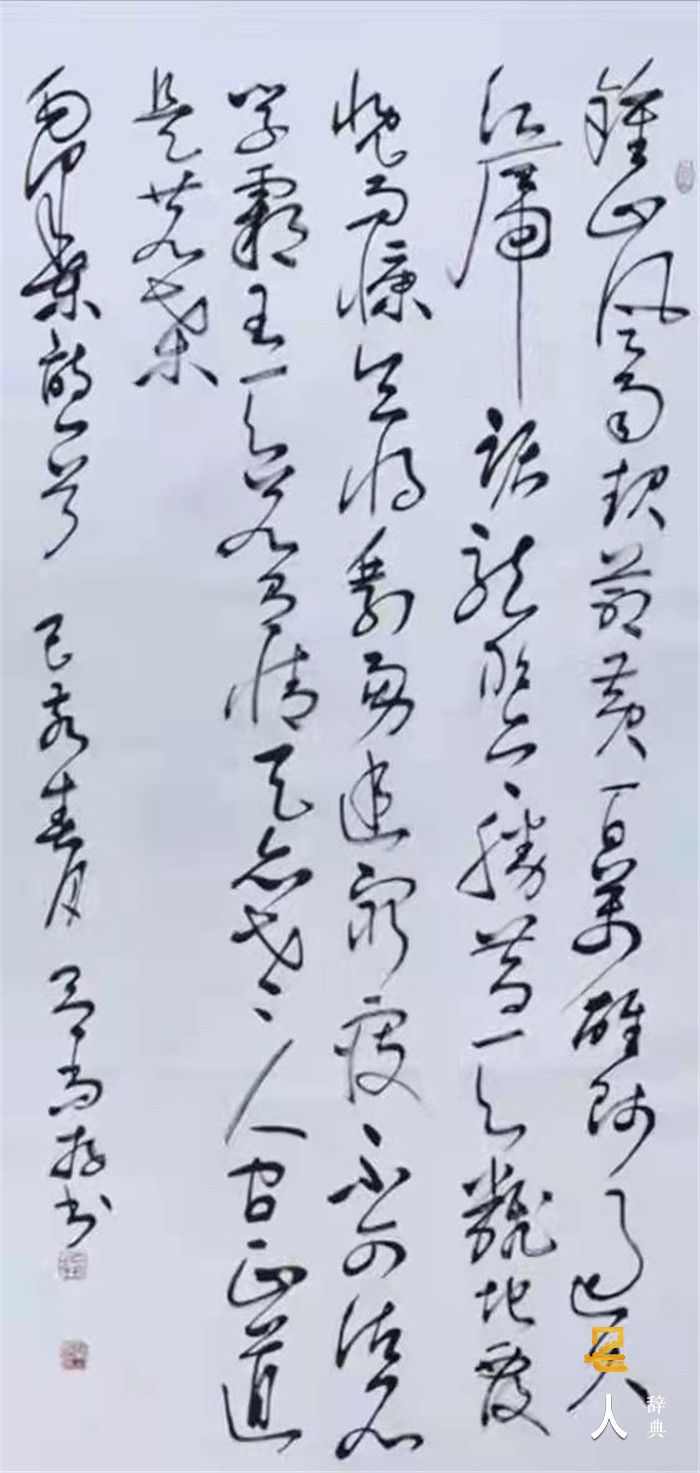 鍾山风雨起蒼黄百万雄师过大
江虎踞龍盘今勝昔天翻地覆
慨而慷宜将剩勇追穷寇不可沽名
学霸王天若有情天亦老人间正道
是苍桑
毛泽东诗一首 己亥春月 书
名人辞典